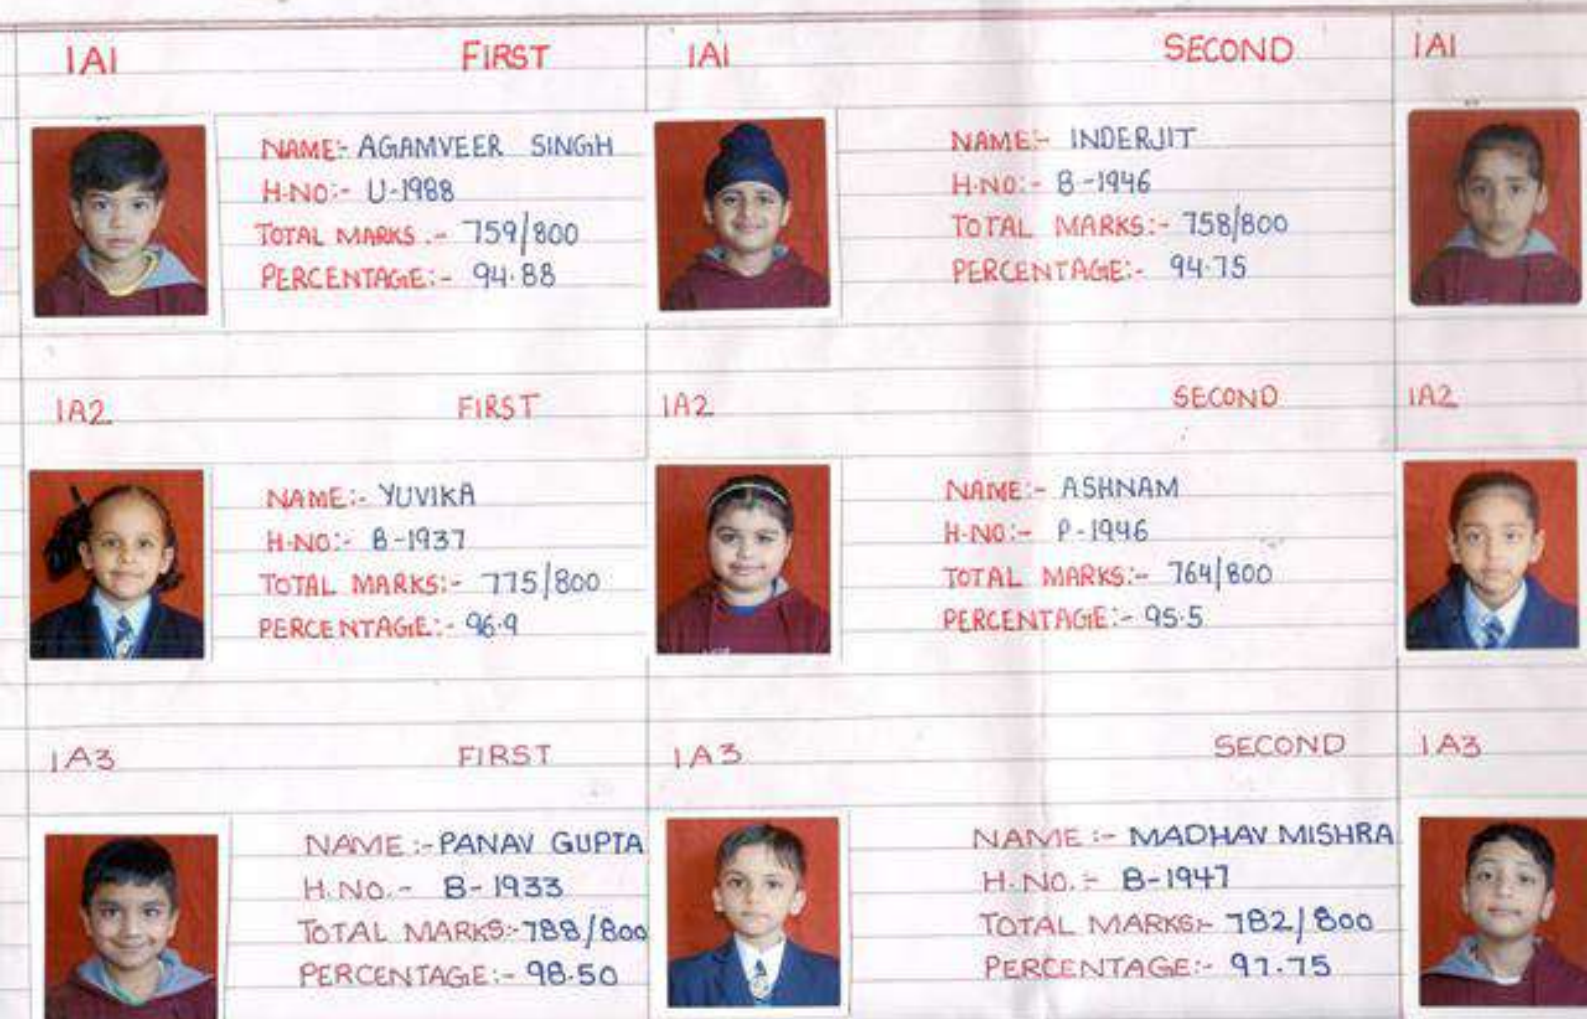 1A1 FIRST
NAME:- AGAMVEER SINGH
H.NO:- U-1988
TOTAL MARKS :- 759/800
PERCENTAGE:- 94.88
1A1 SECOND
NAME:- INDERJIT
H.NO:- B-1946
TOTAL MARKS:- 758/800
PERCENTAGE:- 94.75
1A1
1A2 FIRST
NAME:- YUVIKA
H.NO:- B-1937
TOTAL MARKS:- 775/800
PERCENTAGE:- 96.9
1A2 SECOND
NAME:- ASHNAM
H.NO:- P-1946
TOTAL MARKS:- 764/800
PERCENTAGE:- 95.5
1A2
1A3 FIRST
NAME:- PANAV GUPTA
H.NO.- B-1933
TOTAL MARKS:- 788/800
PERCENTAGE:- 98.50
1A3 SECOND
NAME:- MADHAV MISHRA
H.NO.:- B-1947
TOTAL MARKS:- 782/800
PERCENTAGE:- 97.75
1A3